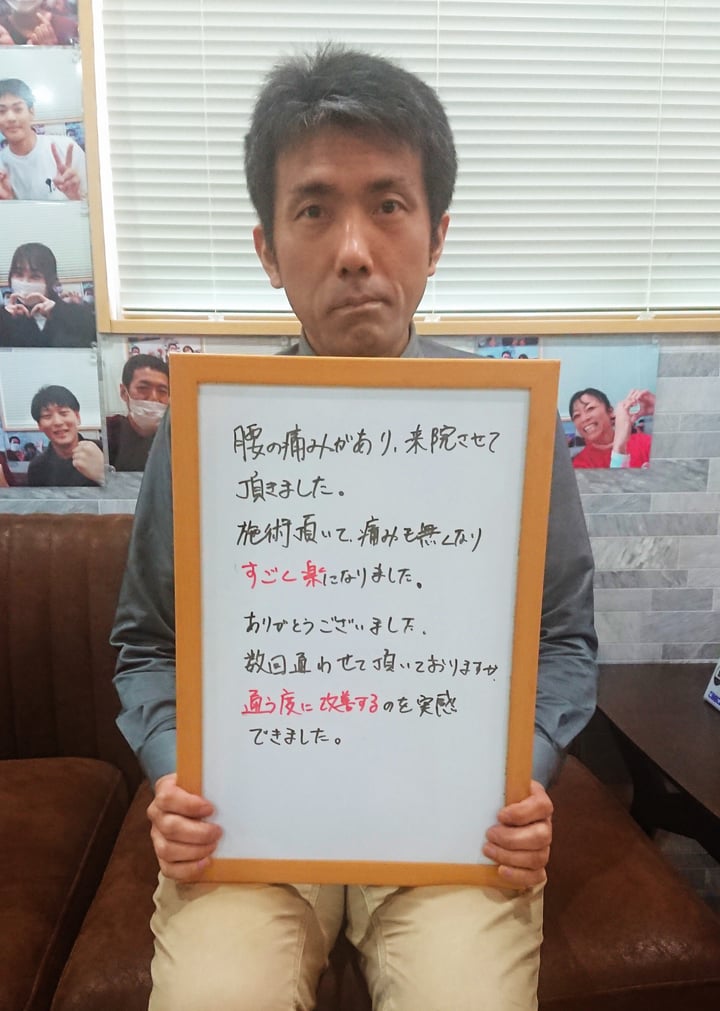 腰の痛みがあり、来院させて
頂きました。
施術頂いて、痛みも無くなり
すごく楽になりました。
ありがとうございました。
数回通わせて頂いておりますが、
通う度に改善するのを実感
できました。